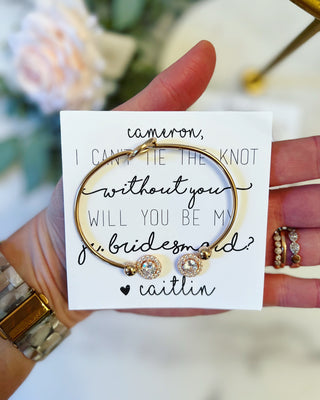 cameron,
I CAN'T TIE THE KNOT
without you
WILL YOU BE MY
jr. bridesmaid?
♥ caitlin